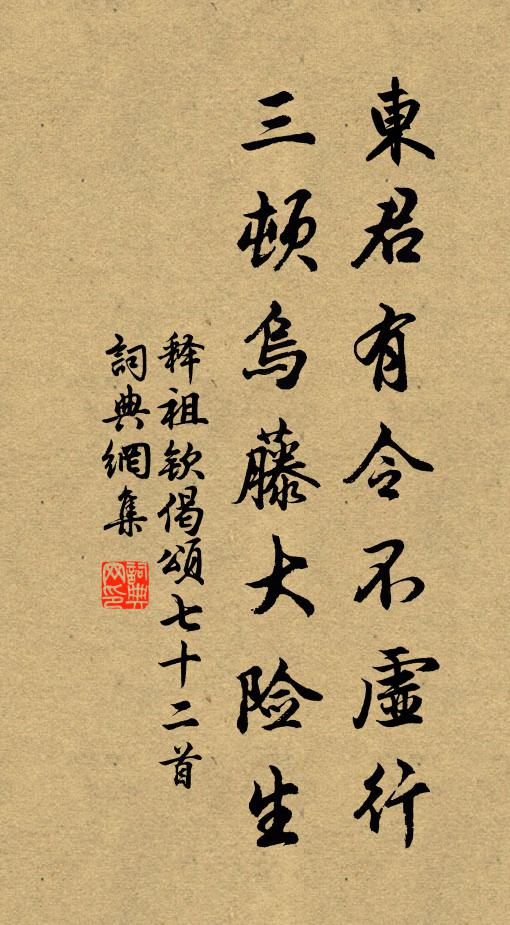 東君有令不虛行
三頓烏藤大险生
释祖欽偈頌七十二首
詞典網集
詞典网印